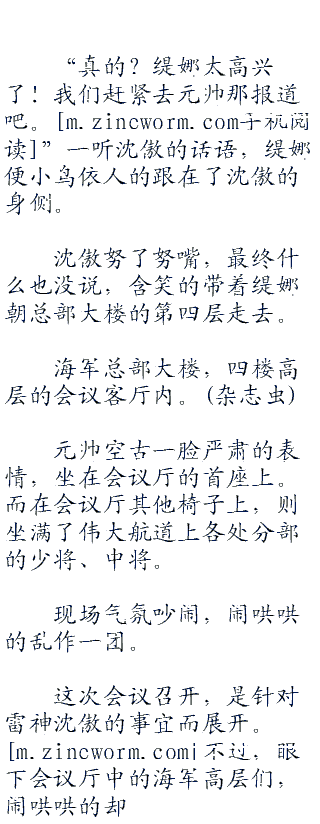 “真的？缇娜太高兴
了！我们赶紧去元帅那报道
吧。[m.zincworm.com手机阅
读]”一听沈傲的话语，缇娜
便小鸟依人的跟在了沈傲的
身侧。
沈傲努了努嘴，最终什
么也没说，含笑的带着缇娜
朝总部大楼的第四层走去。
海军总部大楼，四楼高
层的会议客厅内。(杂志虫)
元帅空古一脸严肃的表
情，坐在会议厅的首座上。
而在会议厅其他椅子上，则
坐满了伟大航道上各处分部
的少将、中将。
现场气氛吵闹，闹哄哄
的乱作一团。
这次会议召开，是针对
雷神沈傲的事宜而展开。
[m.zincworm.com]不过，眼
下会议厅中的海军高层们，
闹哄哄的却